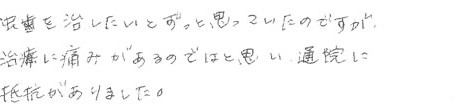 虫歯を治したいとずっと思っていたのですが、
治療に痛みがあるのではと思い、通院に
抵抗がありました。